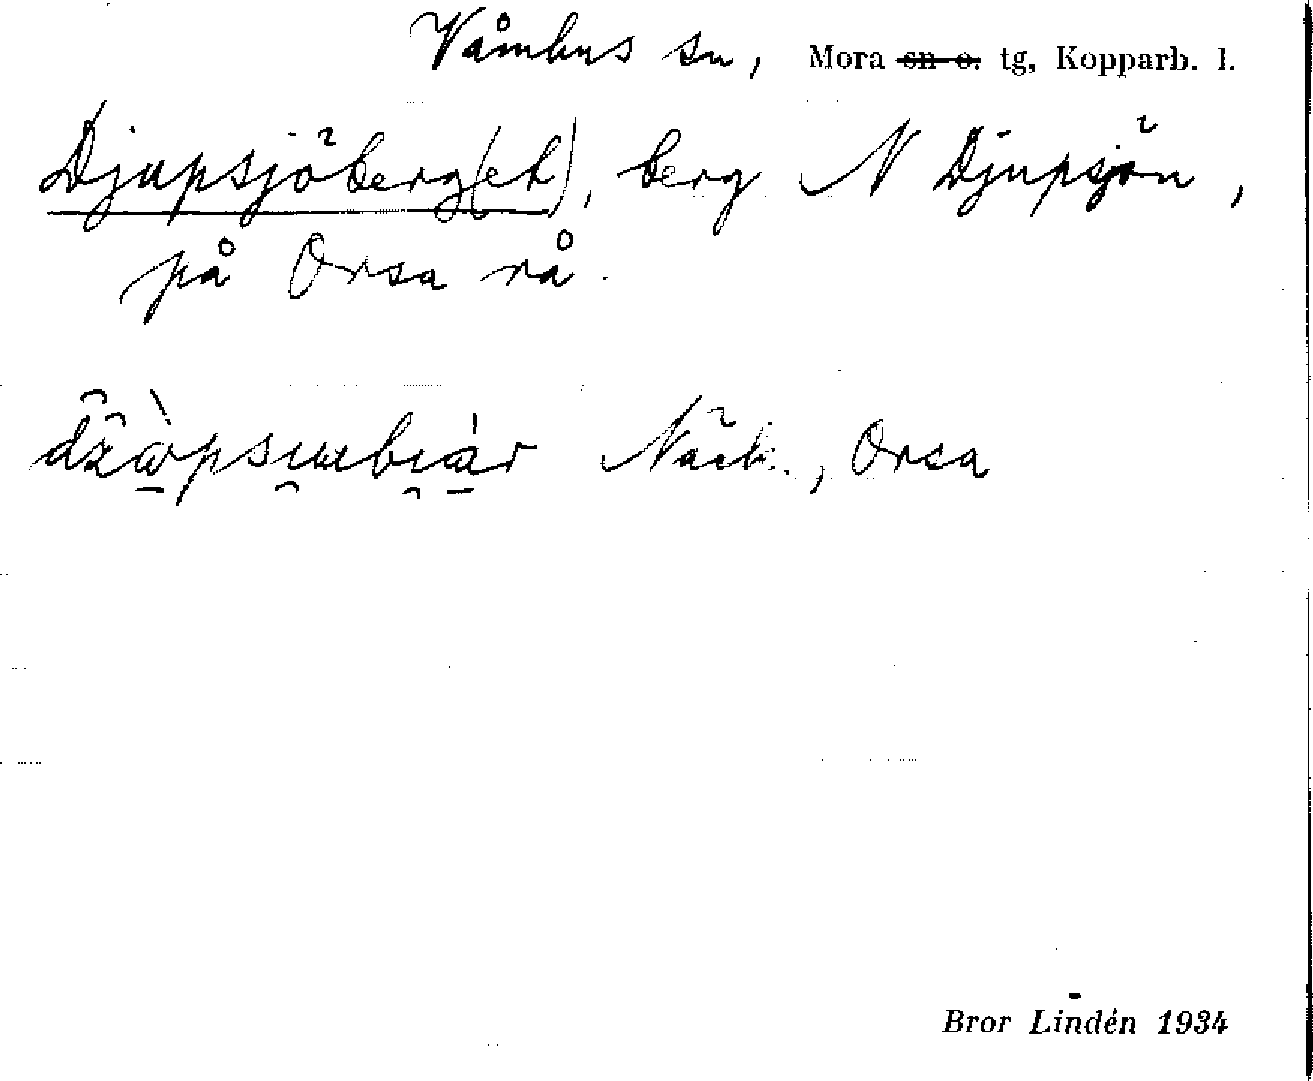 Våmhus sn, Mora sn o. tg, Kopparb. l.
Djupsjöberg(et), berg N Djupsjön,
på Orsa rå.
Näck., Orsa
Bror Lindén 1934